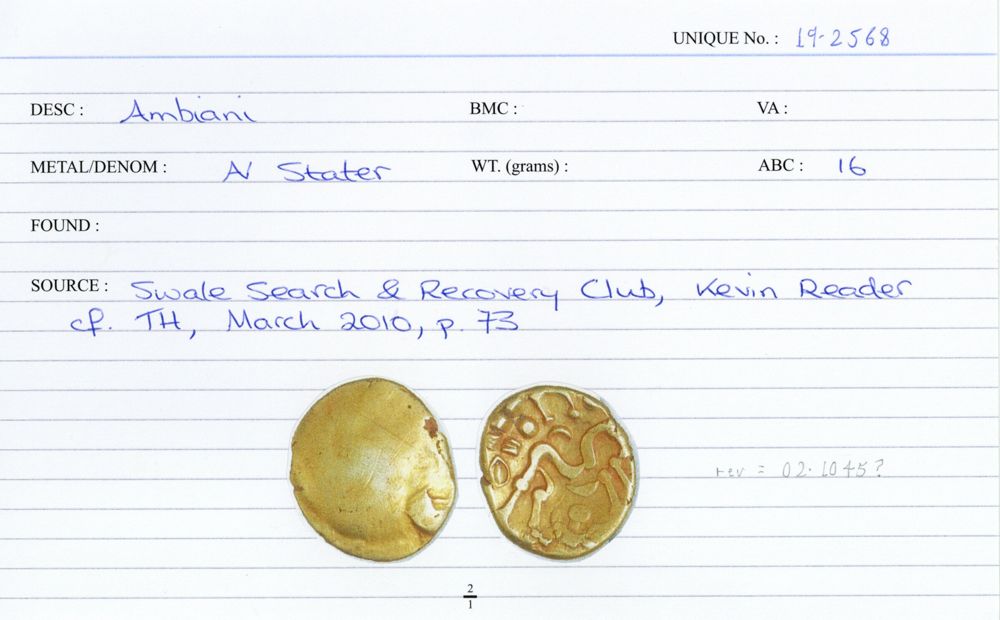 UNIQUE No. : 19-2568
DESC : Ambiani BMC : VA :
METAL/DENOM : N Stater WT. (grams) : ABC : 16
FOUND :
SOURCE : Swale Search & Recovery Club, Kevin Reader
cf. TH, March 2010, p. 73
rev = 02.1045?
2
1